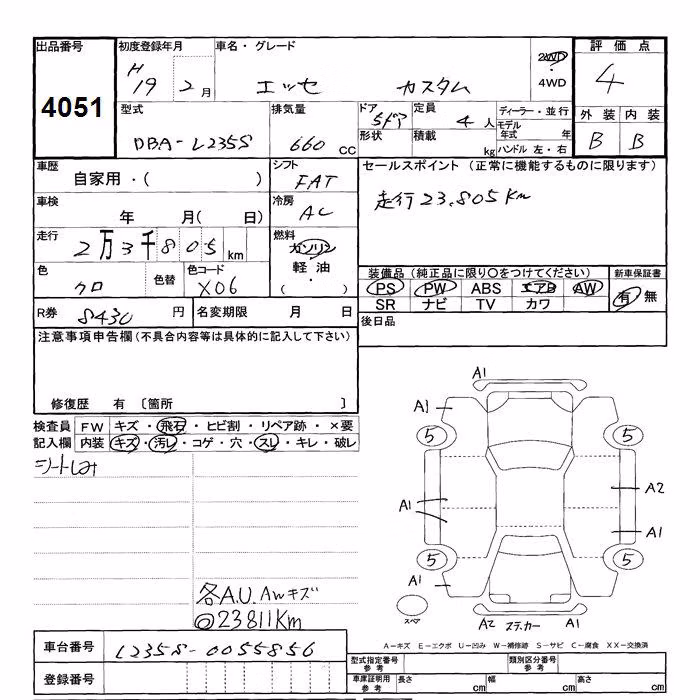 出品番号 初度登録年月 車名・グレード 2WD・4WD 評価点
4051 H19 2月 エッセ カスタム 4
型式 排気量 ドア 定員 ディーラー・並行 外装 内装
DBA-L235S 660cc 5ドア 4人 モデル年式 年 B B
形状 積載 kg ハンドル 左・右
車歴 シフト セールスポイント (正常に機能するものに限ります)
自家用・( ) FAT 走行23.805Km
車検 年 月( 日) 冷房 AC
走行 2万3千805km 燃料 ガソリン 軽油・( )
色 クロ 色替 色コード X06 装備品 (純正品に限り〇をつけてください) 新車保証書
PS PW ABS エアB AW 有 無
SR ナビ TV カワ
R券 8430円 名変期限 月 日 後日品
注意事項申告欄 (不具合内容等は具体的に記入して下さい)
修復歴 有 〔箇所 〕
検査員 FW キズ・飛石・ヒビ割・リペア跡・×要
記入欄 内装 キズ・汚レ・コゲ・穴・スレ・キレ・破レ
A1
A1
5 5
A2
A1 A1
5 5
A1
スペア A2 ステッカー A1
各A.U.AWキズ
◎23811Km
車台番号 L235S-0055856
登録番号
A-キズ E-エクボ U-凹み W-補修跡 S-サビ C-腐食 XX-交換済
型式指定番号 参考 類別区分番号 参考
車庫証明用 参考 長さ cm 幅 cm 高さ cm